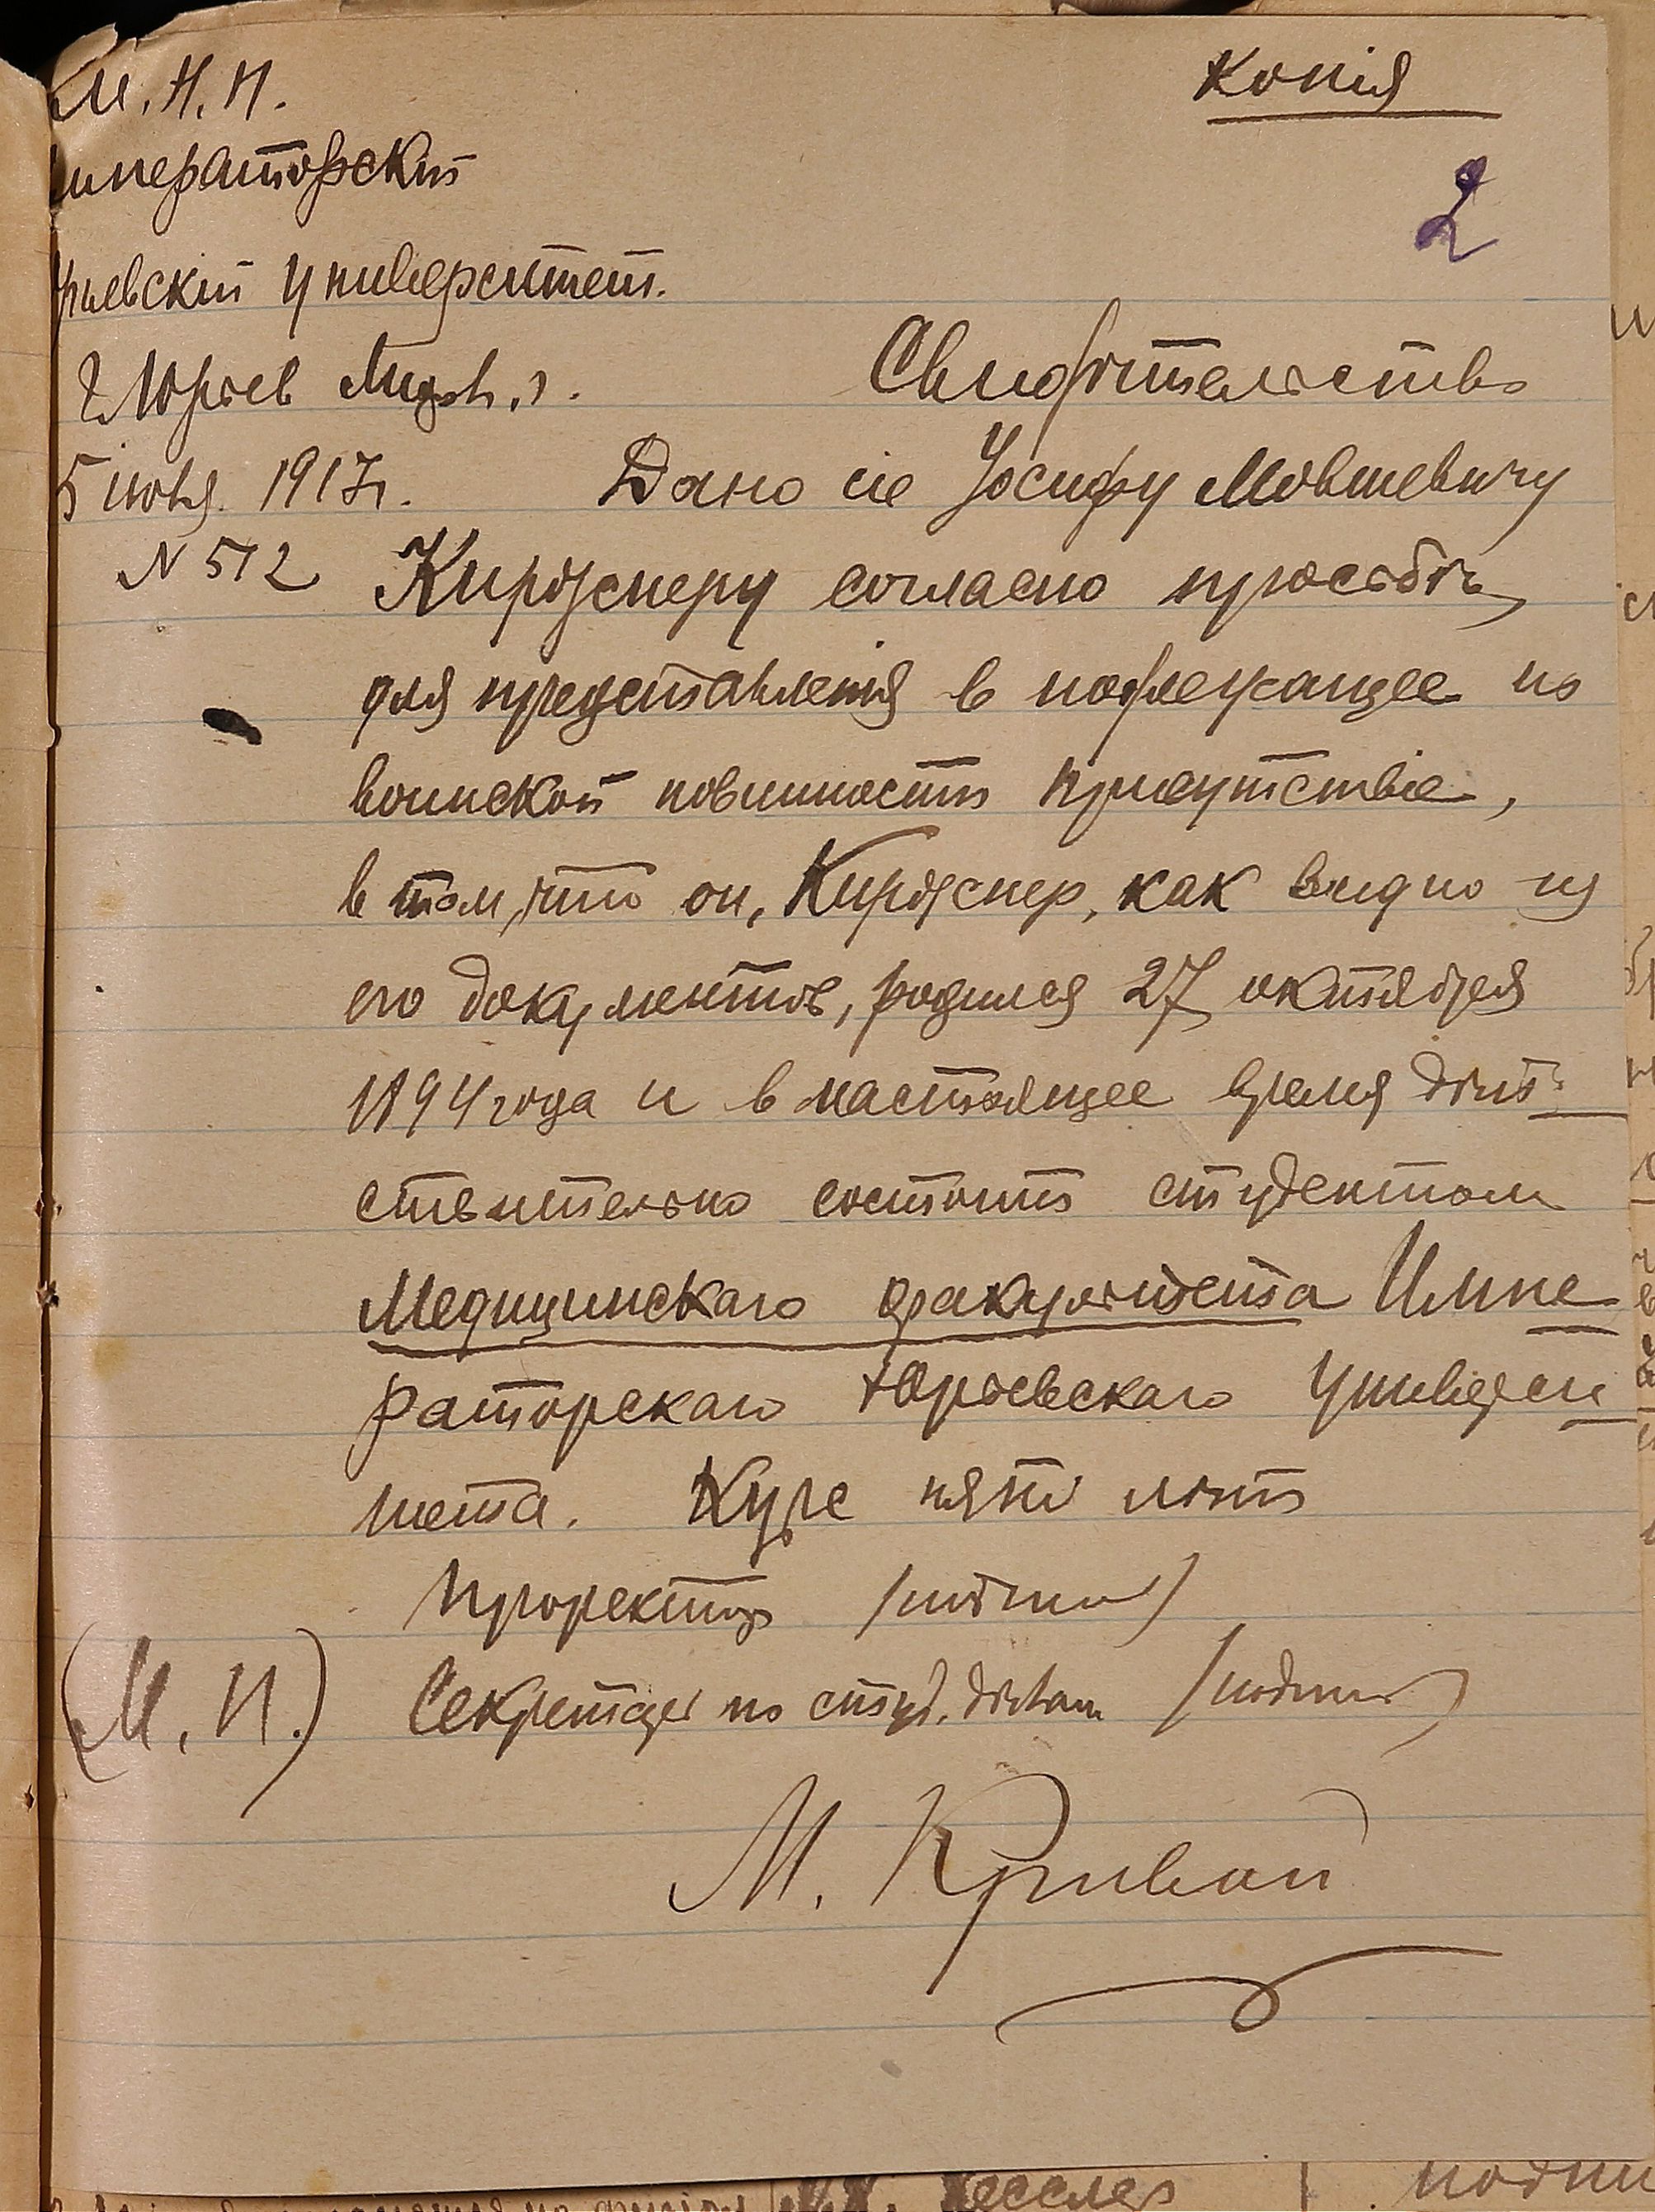 М. Н. П.
Копія
2
Императорскій
Юрьевскій Университет.
г Юрьев Лифл. г.
Свидѣтельство
5 іюня 1917 г.
Дано сіе Іосифу Мовшевичу
N 512
Кирбснеру согласно просьбѣ,
для представленія в подлежащее по
воинской повинности присутствіе,
в том, что он, Кирбснер, как видно из
его документов, родился 27 октября
1894 года и в настоящее время дѣй-
ствительно состоит студентом
Медицинскаго факультета Импе
раторскаго Юрьевскаго Универси
тета. Курс пяти лѣт
Проректор (подпись)
(М. П.)
Секретарь по студ. дѣлам (подпись)
М. Кривой